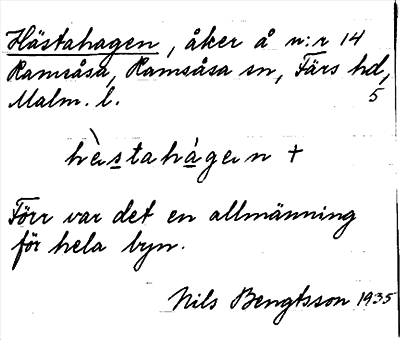 Hästahagen, åker å n:r 14
Ramsåsa, Ramsåsa sn, Färs hd,
Malm. l. 5
hὰstahágan +
Förr var det en allmänning
för hela byn.
Nils Bengtsson 1935